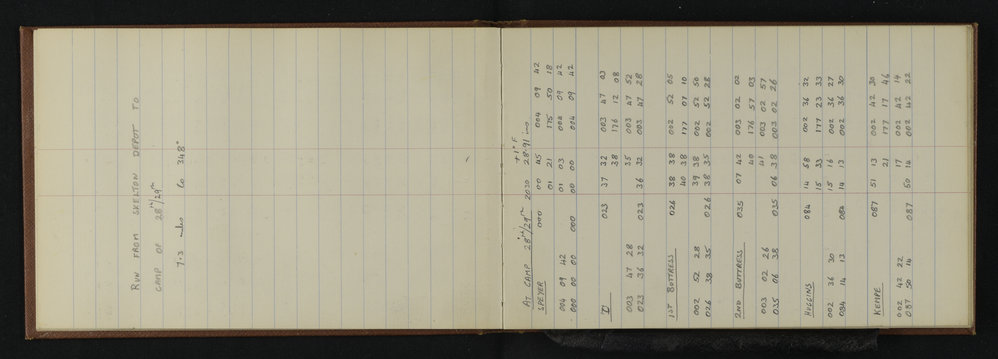 RUN FROM SKELTON DEPOT TO
CAMP OF 28th/29th
7.3 miles Co 348°
+1°F
AT CAMP 28th/29th 2030 28.91 ins
SPEYER 000 00 45 004 09 42
01 21 175 50 18
004 09 42 01 03 004 09 42
000 00 00 000 00 00 004 09 42
023 37 32 003 47 03
38 176 12 08
003 47 28 35 003 47 52
023 36 32 023 36 32 003 47 28
1ST BUTTRESS 026 38 38 002 52 05
40 38 177 07 10
002 52 28 39 38 002 52 50
026 38 35 026 38 35 002 52 28
2ND BUTTRESS 035 07 42 003 02 02
40 176 57 03
003 02 26 41 003 02 57
035 06 38 035 06 38 003 02 26
HUGGINS 084 14 58 002 36 32
15 33 177 23 33
002 36 30 15 16 002 36 27
084 14 13 084 14 13 002 36 30
KEMPE 087 51 13 002 42 30
21 177 17 46
002 42 22 17 002 42 14
087 50 14 087 50 14 002 42 22